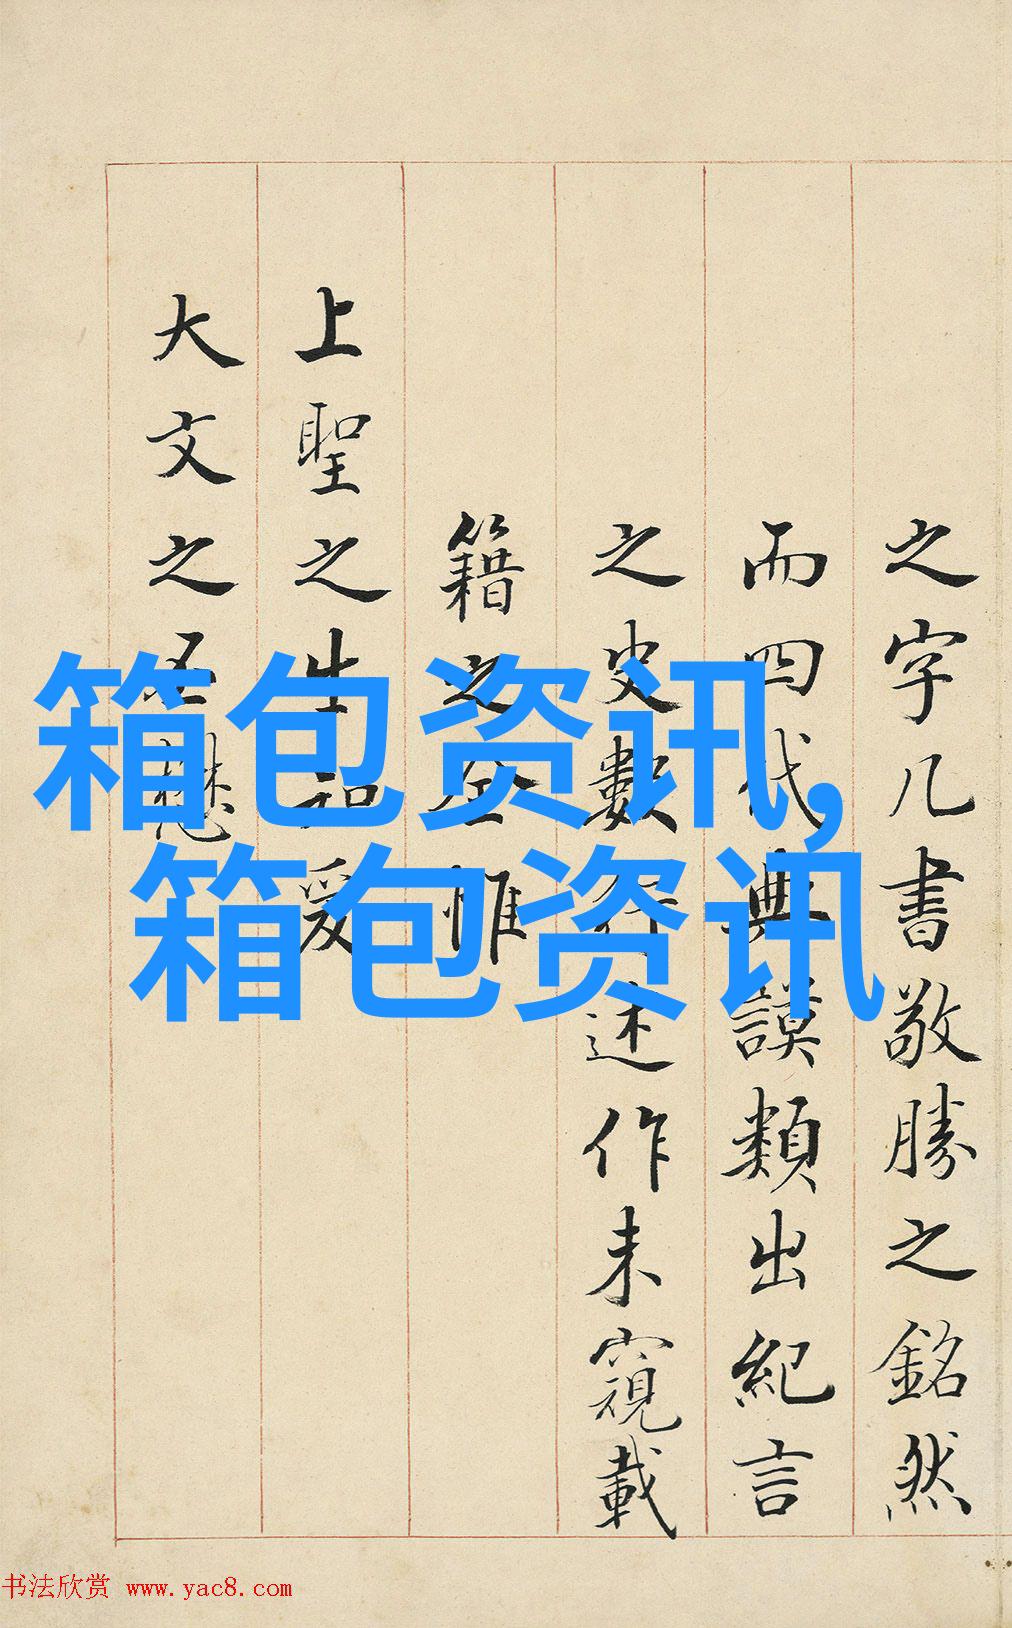 之字几書敬勝之銘然
而四代典謨類出紀言
之史數行述作未窺載
籍之全惟
上聖之生知爰
大文之丕懋
箱包资讯,
箱包资讯
书法欣赏 www.yac8.com